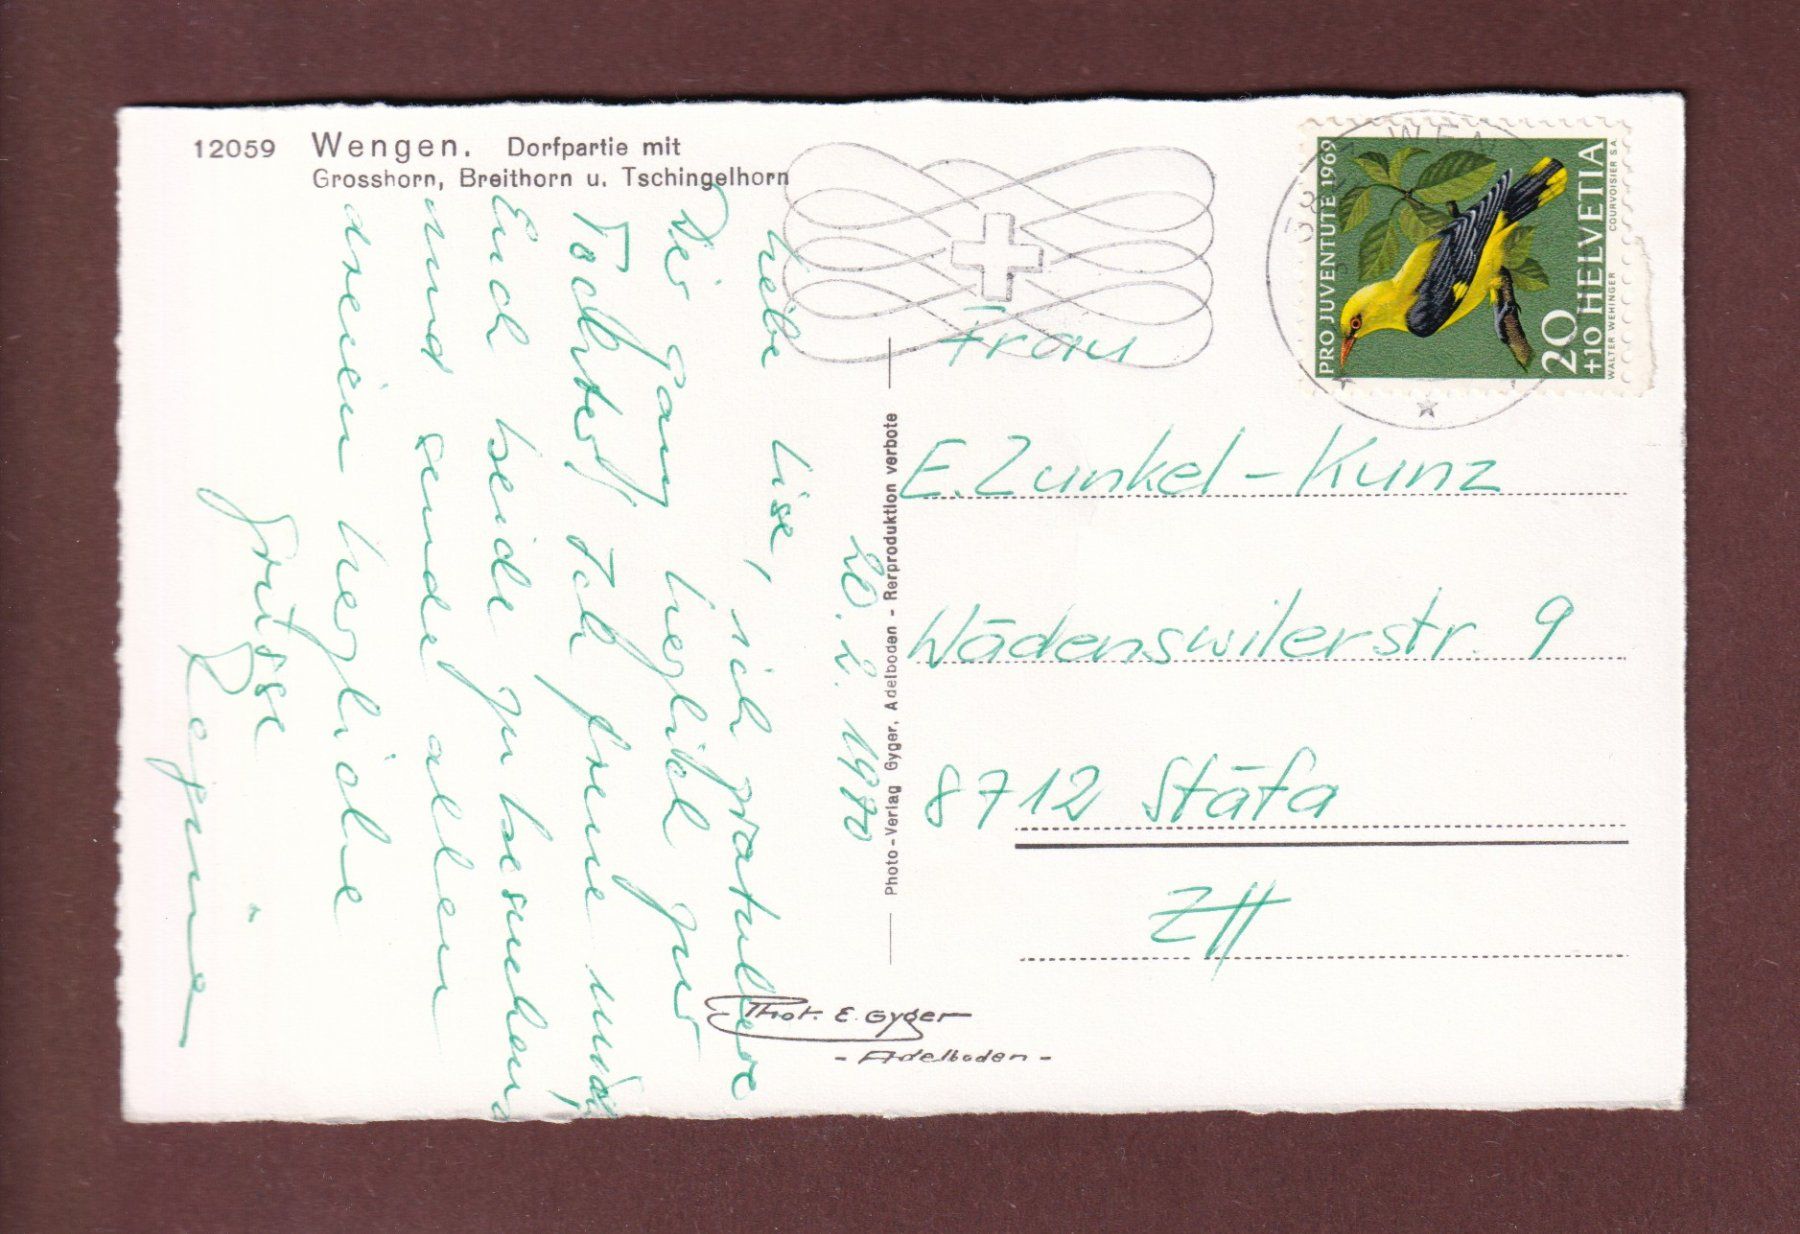 12059 Wengen. Dorfpartie mit
Grosshorn, Breithorn u. Tschingelhorn
20. 2. 1970
Liebe Lise, ich gratuliere
Dir ganz herzlich zur
Tochter! Ich freue mich,
Euch beide zu besuchen
und sende allen
dreien herzliche
Grüsse
Regina
Photo-Verlag Gyger, Adelboden - Rerproduktion verbote
Phot. E. Gyger
- Adelboden -
PRO JUVENTUTE 1969
HELVETIA
20
+10
WALTER WEHINGER COURVOISIER S.A.
Frau
E. Zunkel-Kunz
Wädenswilerstr. 9
8712 Stäfa
ZH